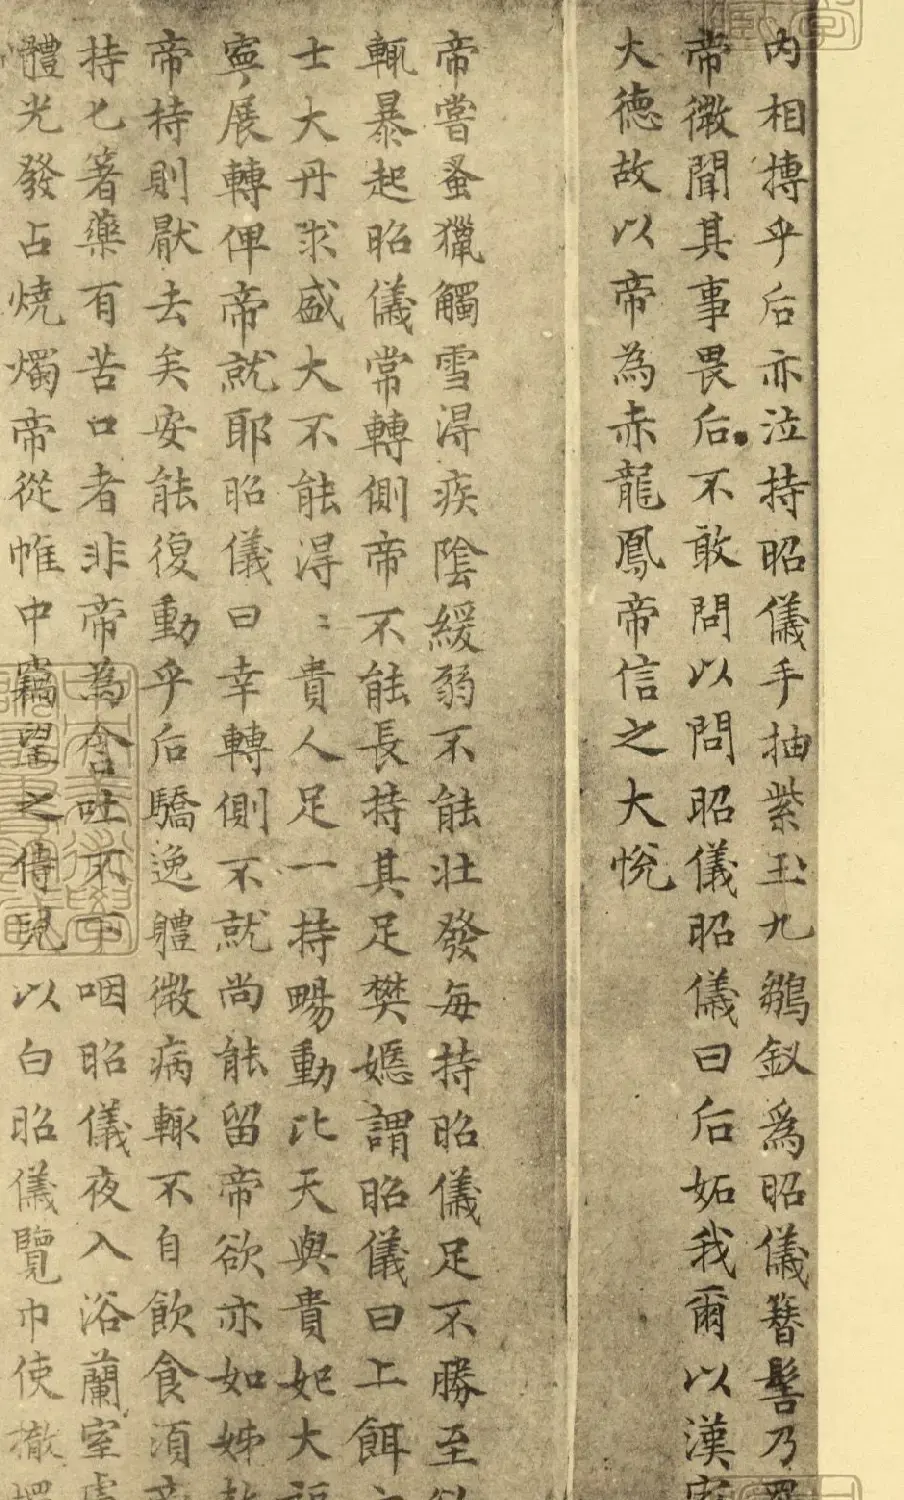 内相搏乎后亦泣持昭儀手抽紫玉九鶵釵為昭儀簪髻乃罷
帝微聞其事畏后不敢問以問昭儀昭儀曰后妬我爾以漢家
大德故以帝為赤龍鳳帝信之大悅
帝嘗蚤獵觸雪得疾陰緩弱不能壯發每持昭儀足不勝至欲
輒暴起昭儀常轉側帝不能長持其足樊嫕謂昭儀曰上餌方
士大丹求盛大不能得〻貴人足一持暢動此天與貴妃大福
寧展轉俾帝就耶昭儀曰幸轉側不就尚能留帝欲亦如姊教
帝持則厭去矣安能復動乎后驕逸體微病輒不自飲食須帝
持匕箸藥有苦口者非帝為含吐不下咽昭儀夜入浴蘭室膚
體光發占燒燭帝從帷中竊望之侍兒以白昭儀覽巾使撤